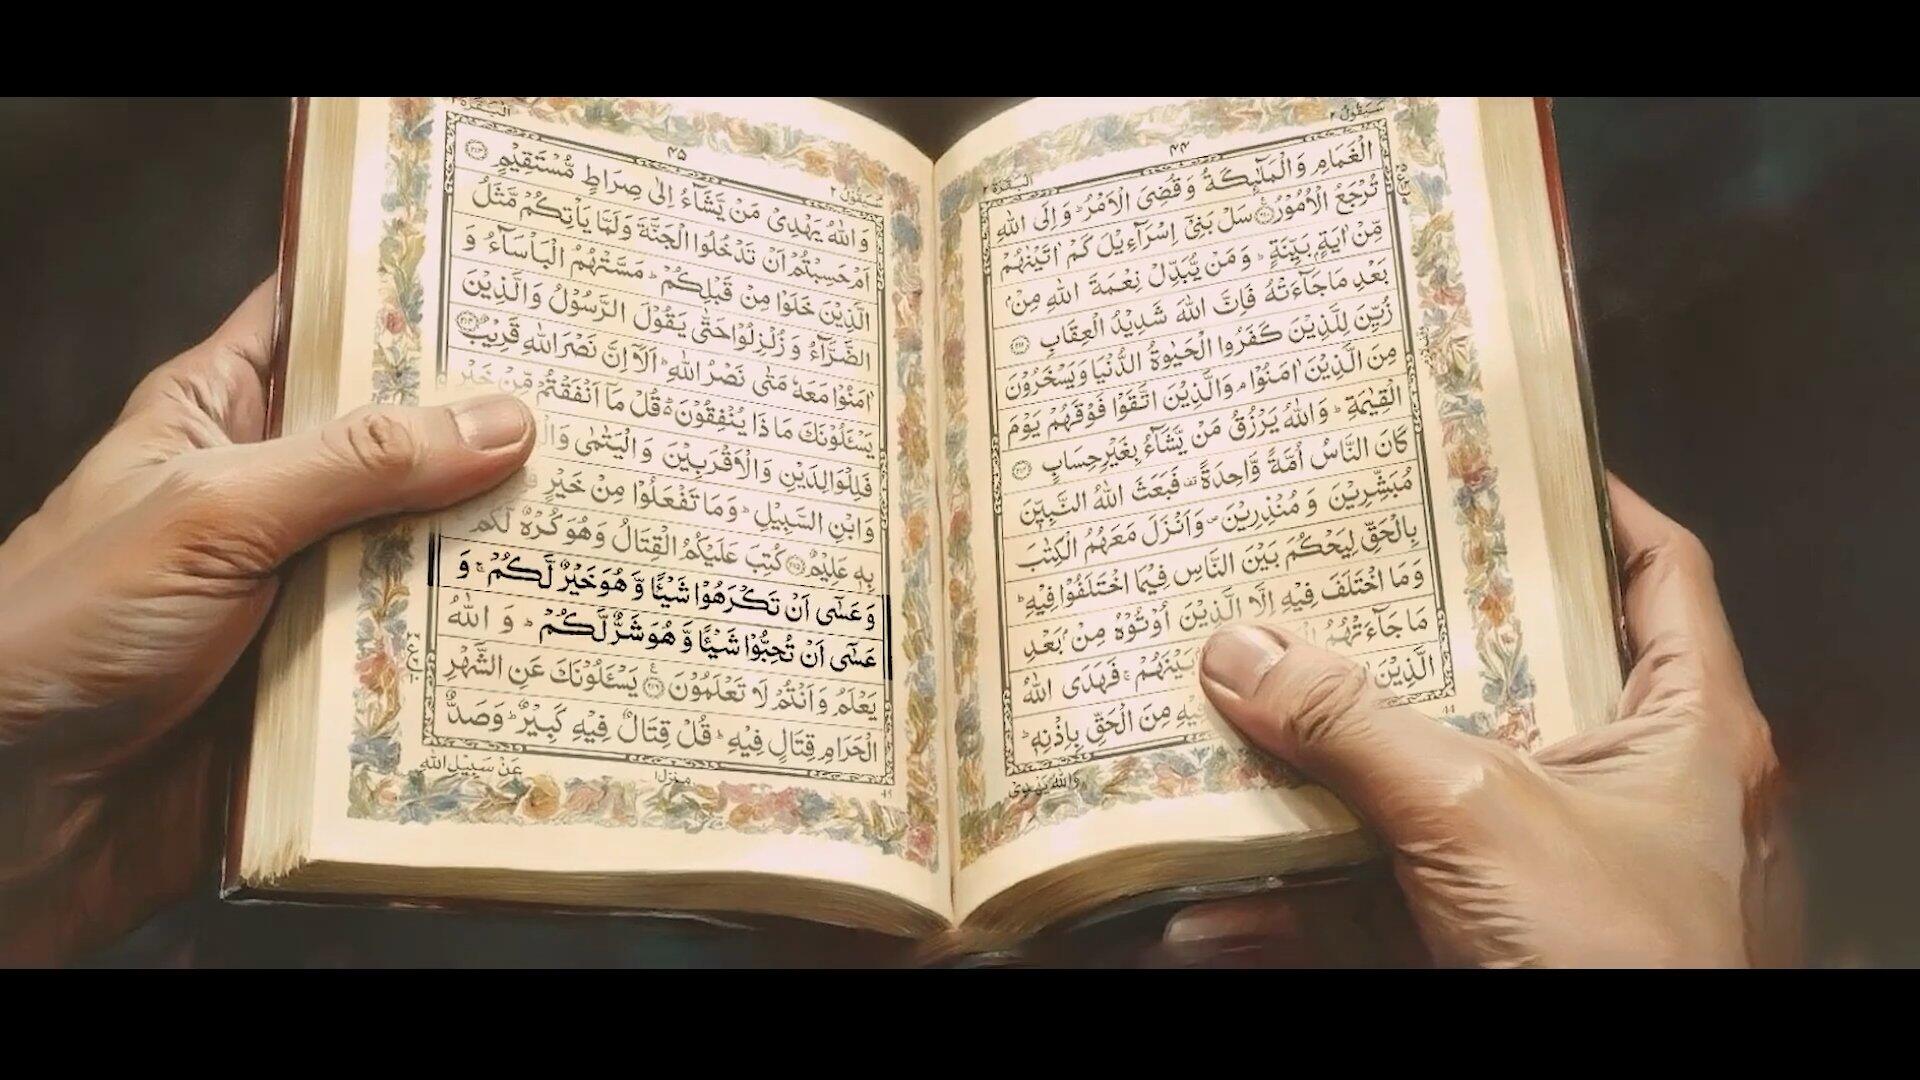 سَيَقُوْلُ ٢
٤٤
الْبَقَرَة ٢
الْغَمَامِ وَالْمَلٰٓئِكَةُ وَقُضِيَ الْاَمْرُ ؕ وَاِلَى اللّٰهِ
تُرْجَعُ الْاُمُوْرُ ﴿٢١٠﴾ سَلْ بَنِيْٓ اِسْرَآءِيْلَ كَمْ اٰتَيْنٰهُمْ
مِّنْ اٰيَةٍۭ بَيِّنَةٍ ؕ وَمَنْ يُّبَدِّلْ نِعْمَةَ اللّٰهِ مِنْۢ
بَعْدِ مَا جَآءَتْهُ فَاِنَّ اللّٰهَ شَدِيْدُ الْعِقَابِ ﴿٢١١﴾
زُيِّنَ لِلَّذِيْنَ كَفَرُوا الْحَيٰوةُ الدُّنْيَا وَيَسْخَرُوْنَ
مِنَ الَّذِيْنَ اٰمَنُوْا ۘ وَالَّذِيْنَ اتَّقَوْا فَوْقَهُمْ يَوْمَ
الْقِيٰمَةِ ؕ وَاللّٰهُ يَرْزُقُ مَنْ يَّشَآءُ بِغَيْرِ حِسَابٍ ﴿٢١٢﴾
كَانَ النَّاسُ اُمَّةً وَّاحِدَةً ۟ فَبَعَثَ اللّٰهُ النَّبِيّٖنَ
مُبَشِّرِيْنَ وَمُنْذِرِيْنَ ۪ وَاَنْزَلَ مَعَهُمُ الْكِتٰبَ
بِالْحَقِّ لِيَحْكُمَ بَيْنَ النَّاسِ فِيْمَا اخْتَلَفُوْا فِيْهِ ؕ
وَمَا اخْتَلَفَ فِيْهِ اِلَّا الَّذِيْنَ اُوْتُوْهُ مِنْۢ بَعْدِ
مَا جَآءَتْهُمُ بَيْنَهُمْ ۚ فَهَدَى اللّٰهُ
الَّذِيْنَ فِيْهِ مِنَ الْحَقِّ بِاِذْنِهٖ ؕ
وَاللّٰهُ يَهْدِيْ
44
الْبَقَرَة ٢
٤٥
سَيَقُوْلُ ٢
وَاللّٰهُ يَهْدِيْ مَنْ يَّشَآءُ اِلٰى صِرَاطٍ مُّسْتَقِيْمٍ ﴿٢١٣﴾
اَمْ حَسِبْتُمْ اَنْ تَدْخُلُوا الْجَنَّةَ وَلَمَّا يَاْتِكُمْ مَّثَلُ
الَّذِيْنَ خَلَوْا مِنْ قَبْلِكُمْ ؕ مَسَّتْهُمُ الْبَاْسَآءُ وَ
الضَّرَّآءُ وَزُلْزِلُوْا حَتّٰى يَقُوْلَ الرَّسُوْلُ وَالَّذِيْنَ
اٰمَنُوْا مَعَهٗ مَتٰى نَصْرُ اللّٰهِ ؕ اَلَآ اِنَّ نَصْرَ اللّٰهِ قَرِيْبٌ ﴿٢١٤﴾
يَسْـَٔلُوْنَكَ مَا ذَا يُنْفِقُوْنَ ؕ قُلْ مَآ اَنْفَقْتُمْ مِّنْ خَيْرٍ
فَلِلْوَالِدَيْنِ وَالْاَقْرَبِيْنَ وَالْيَتٰمٰى
وَابْنِ السَّبِيْلِ ؕ وَمَا تَفْعَلُوْا مِنْ خَيْرٍ
بِهٖ عَلِيْمٌ ﴿٢١٥﴾ كُتِبَ عَلَيْكُمُ الْقِتَالُ وَهُوَ كُرْهٌ لَّكُمْ
وَعَسٰٓى اَنْ تَكْرَهُوْا شَيْـًٔا وَّهُوَ خَيْرٌ لَّكُمْ ۚ وَ
عَسٰٓى اَنْ تُحِبُّوْا شَيْـًٔا وَّهُوَ شَرٌّ لَّكُمْ ؕ وَاللّٰهُ
يَعْلَمُ وَاَنْتُمْ لَا تَعْلَمُوْنَ ﴿٢١٦﴾ يَسْـَٔلُوْنَكَ عَنِ الشَّهْرِ
الْحَرَامِ قِتَالٍ فِيْهِ ؕ قُلْ قِتَالٌ فِيْهِ كَبِيْرٌ ؕ وَصَدٌّ
مَنْزِل ١
عَنْ سَبِيْلِ اللّٰهِ